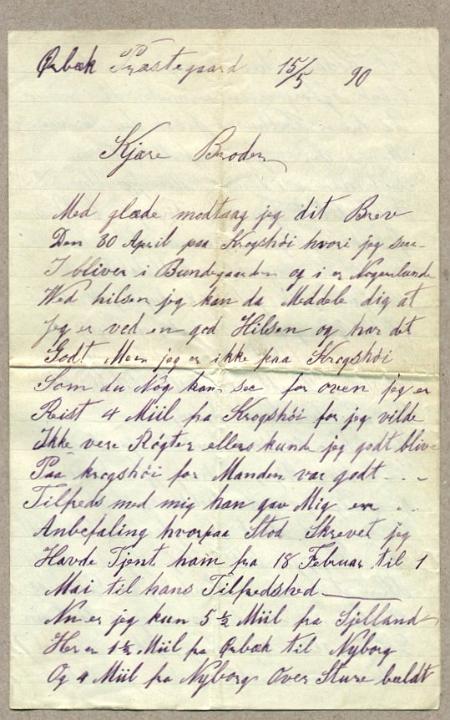 Ørbæk Præstegaard 15/5 90
Kjære Broder
Med glæde modtaag jeg dit Brev
Den 30 April paa Krogshøi hvori jeg saa
I bliver i Bundegaarden og i
Med hilsen jeg kan da Meddele dig at
jeg er ved en god Hilsen og har det
Godt Men jeg er ikke paa Krogshøi
Som du Nog kan see for oven jeg er
Reist 4 Miil fra Krogshøi for jeg vilde
Ikke vere Røgter ellers kunde jeg godt blive
Paa krogshøi for Manden var godt - -
Tilfreds med mig han gav Mig en . .
Anbefaling hvorpaa Stod Skrevet jeg
Havde Tjent ham fra 18 Februar til 1
Mai til hans Tilfredshed
Nu er jeg kun 5 ½ Miil fra Sjelland
Her er 1 ½ Miil fra Ørbæk til Nyborg
Og 4 Miil fra Nyborg Over Sture beldt